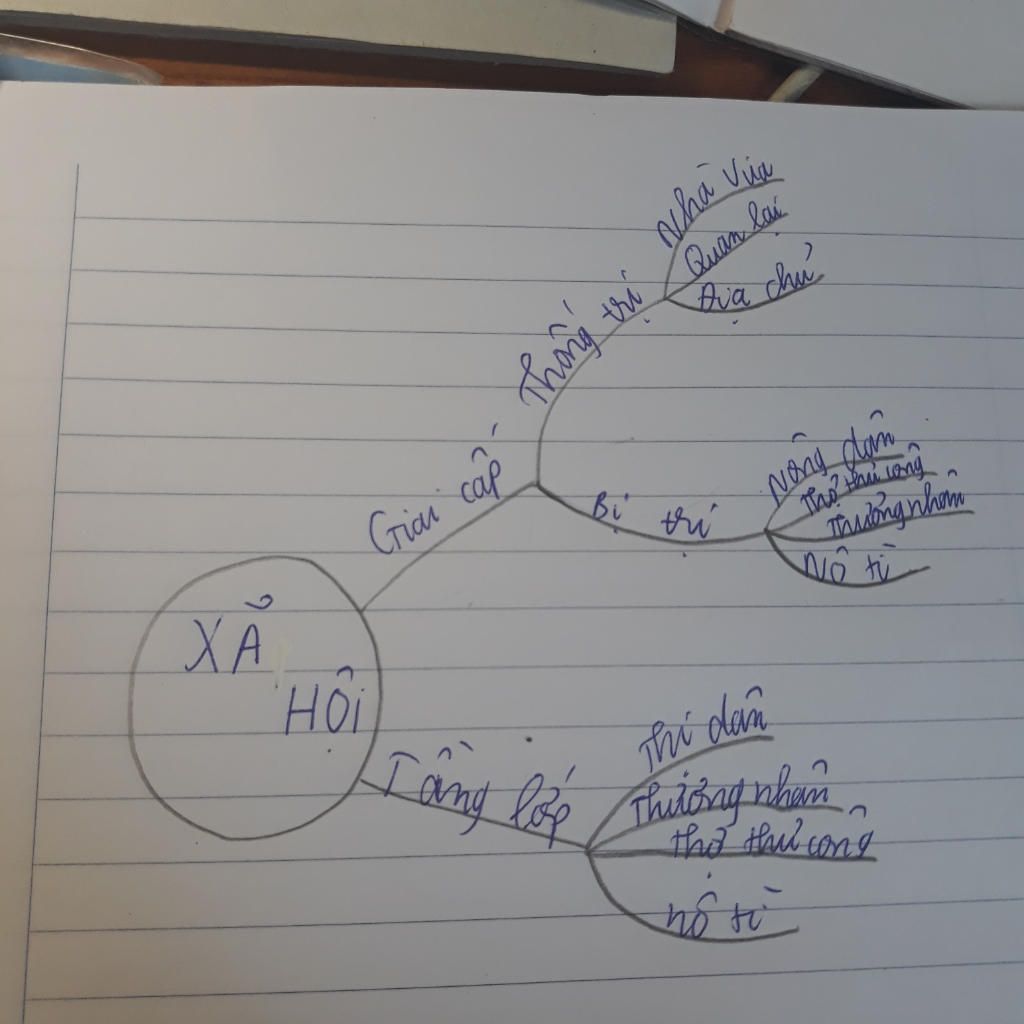 XÃ
HỘI
Giai cấp
Thống trị
Nhà Vua
Quan lại
Địa chủ
Bị trị
Nông dân
Thợ thủ công
Thương nhân
Nô tì
Tầng lớp
Thi dân
Thương nhân
thợ thủ công
nô tì